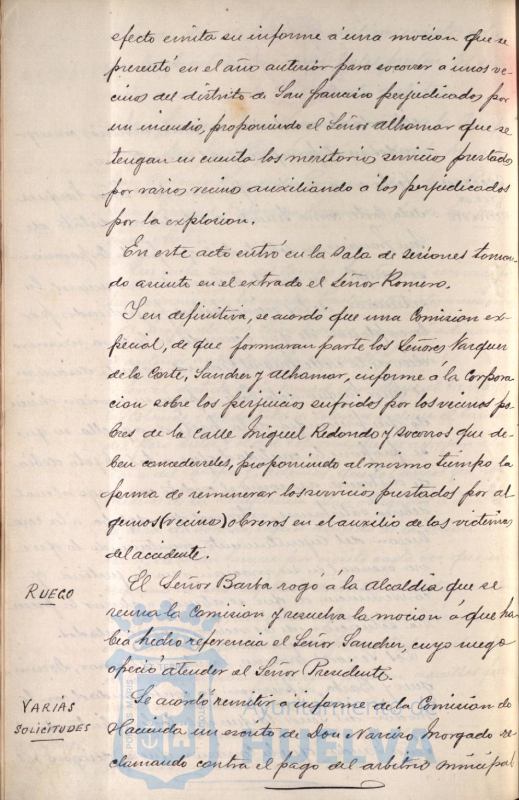 efecto emita su informe á una mocion que se
presentó en el año anterior para socorrer á unos ve-
cinos del distrito de San Francisco perjudicados por
un incendio, proponiendo el Señor Alhamar que se
tengan en cuenta los meritorios servicios prestados
por varios vecinos auxiliando á los perjudicados
por la explosion.
En este acto entró en la Sala de Sesiones toman-
do asiento en el estrado el Señor Romero.
Y en definitiva, se acordó que una Comision es-
pecial, de que formaran parte los Señores Vazquez
de la Corte, Sanchez y Alhamar, informe á la Corpora-
cion sobre los perjuicios sufridos por los vecinos po-
bres de la calle Miguel Redondo y socorros que de-
ben concederseles, proponiendo al mismo tiempo la
forma de remunerar los servicios prestados por al-
gunos (vecinos) obreros en el auxilio de las victimas
del accidente.
RUEGO
El Señor Barba rogó á la Alcaldia que se
reuna la Comision y resuelva la mocion á que ha-
bia hecho referencia el Señor Sanchez, cuyo ruego
ofreció atender el Señor Presidente.
VARIAS
SOLICITUDES
Se acordó remitir á informe de la Comision de
Hacienda un escrito de Don Narciso Morgado re-
clamando contra el pago del arbitrio municipal
Ayuntamiento de
HUELVA